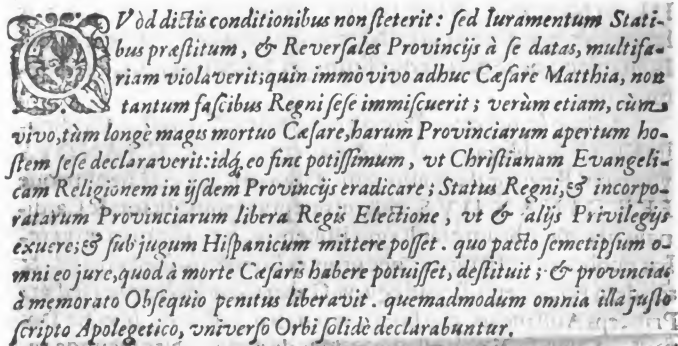 QVòd dictis conditionibus non ſteterit: ſed Iuramentum Stati-
bus præſtitum, & Reverſales Provincijs à ſe datas, multifa-
riam violaverit; quin immò vivo adhuc Cæſare Matthia, non
tantum faſcibus Regni ſeſe immiſcuerit; verùm etiam, cùm
vivo, tùm longè magis mortuo Cæſare, harum Provinciarum apertum ho-
ſtem ſeſe declaraverit: idq́, eo fine potiſſimum, vt Chriſtianam Evangeli-
cam Religionem in ijſdem Provincijs eradicare; Status Regni, & incorpo-
ratarum Provinciarum libera Regis Electione, vt & alijs Privilegijs
exuere; & ſub jugum Hiſpanicum mittere poſſet. quo pacto ſemetipſum o-
mni eo jure, quod à morte Cæſaris habere potuiſſet, deſtituit; & provincias
à memorato Obſequio penitus liberavit. quemadmodum omnia illa juſto
ſcripto Apolegetico, vniverſo Orbi ſolidè declarabuntur.